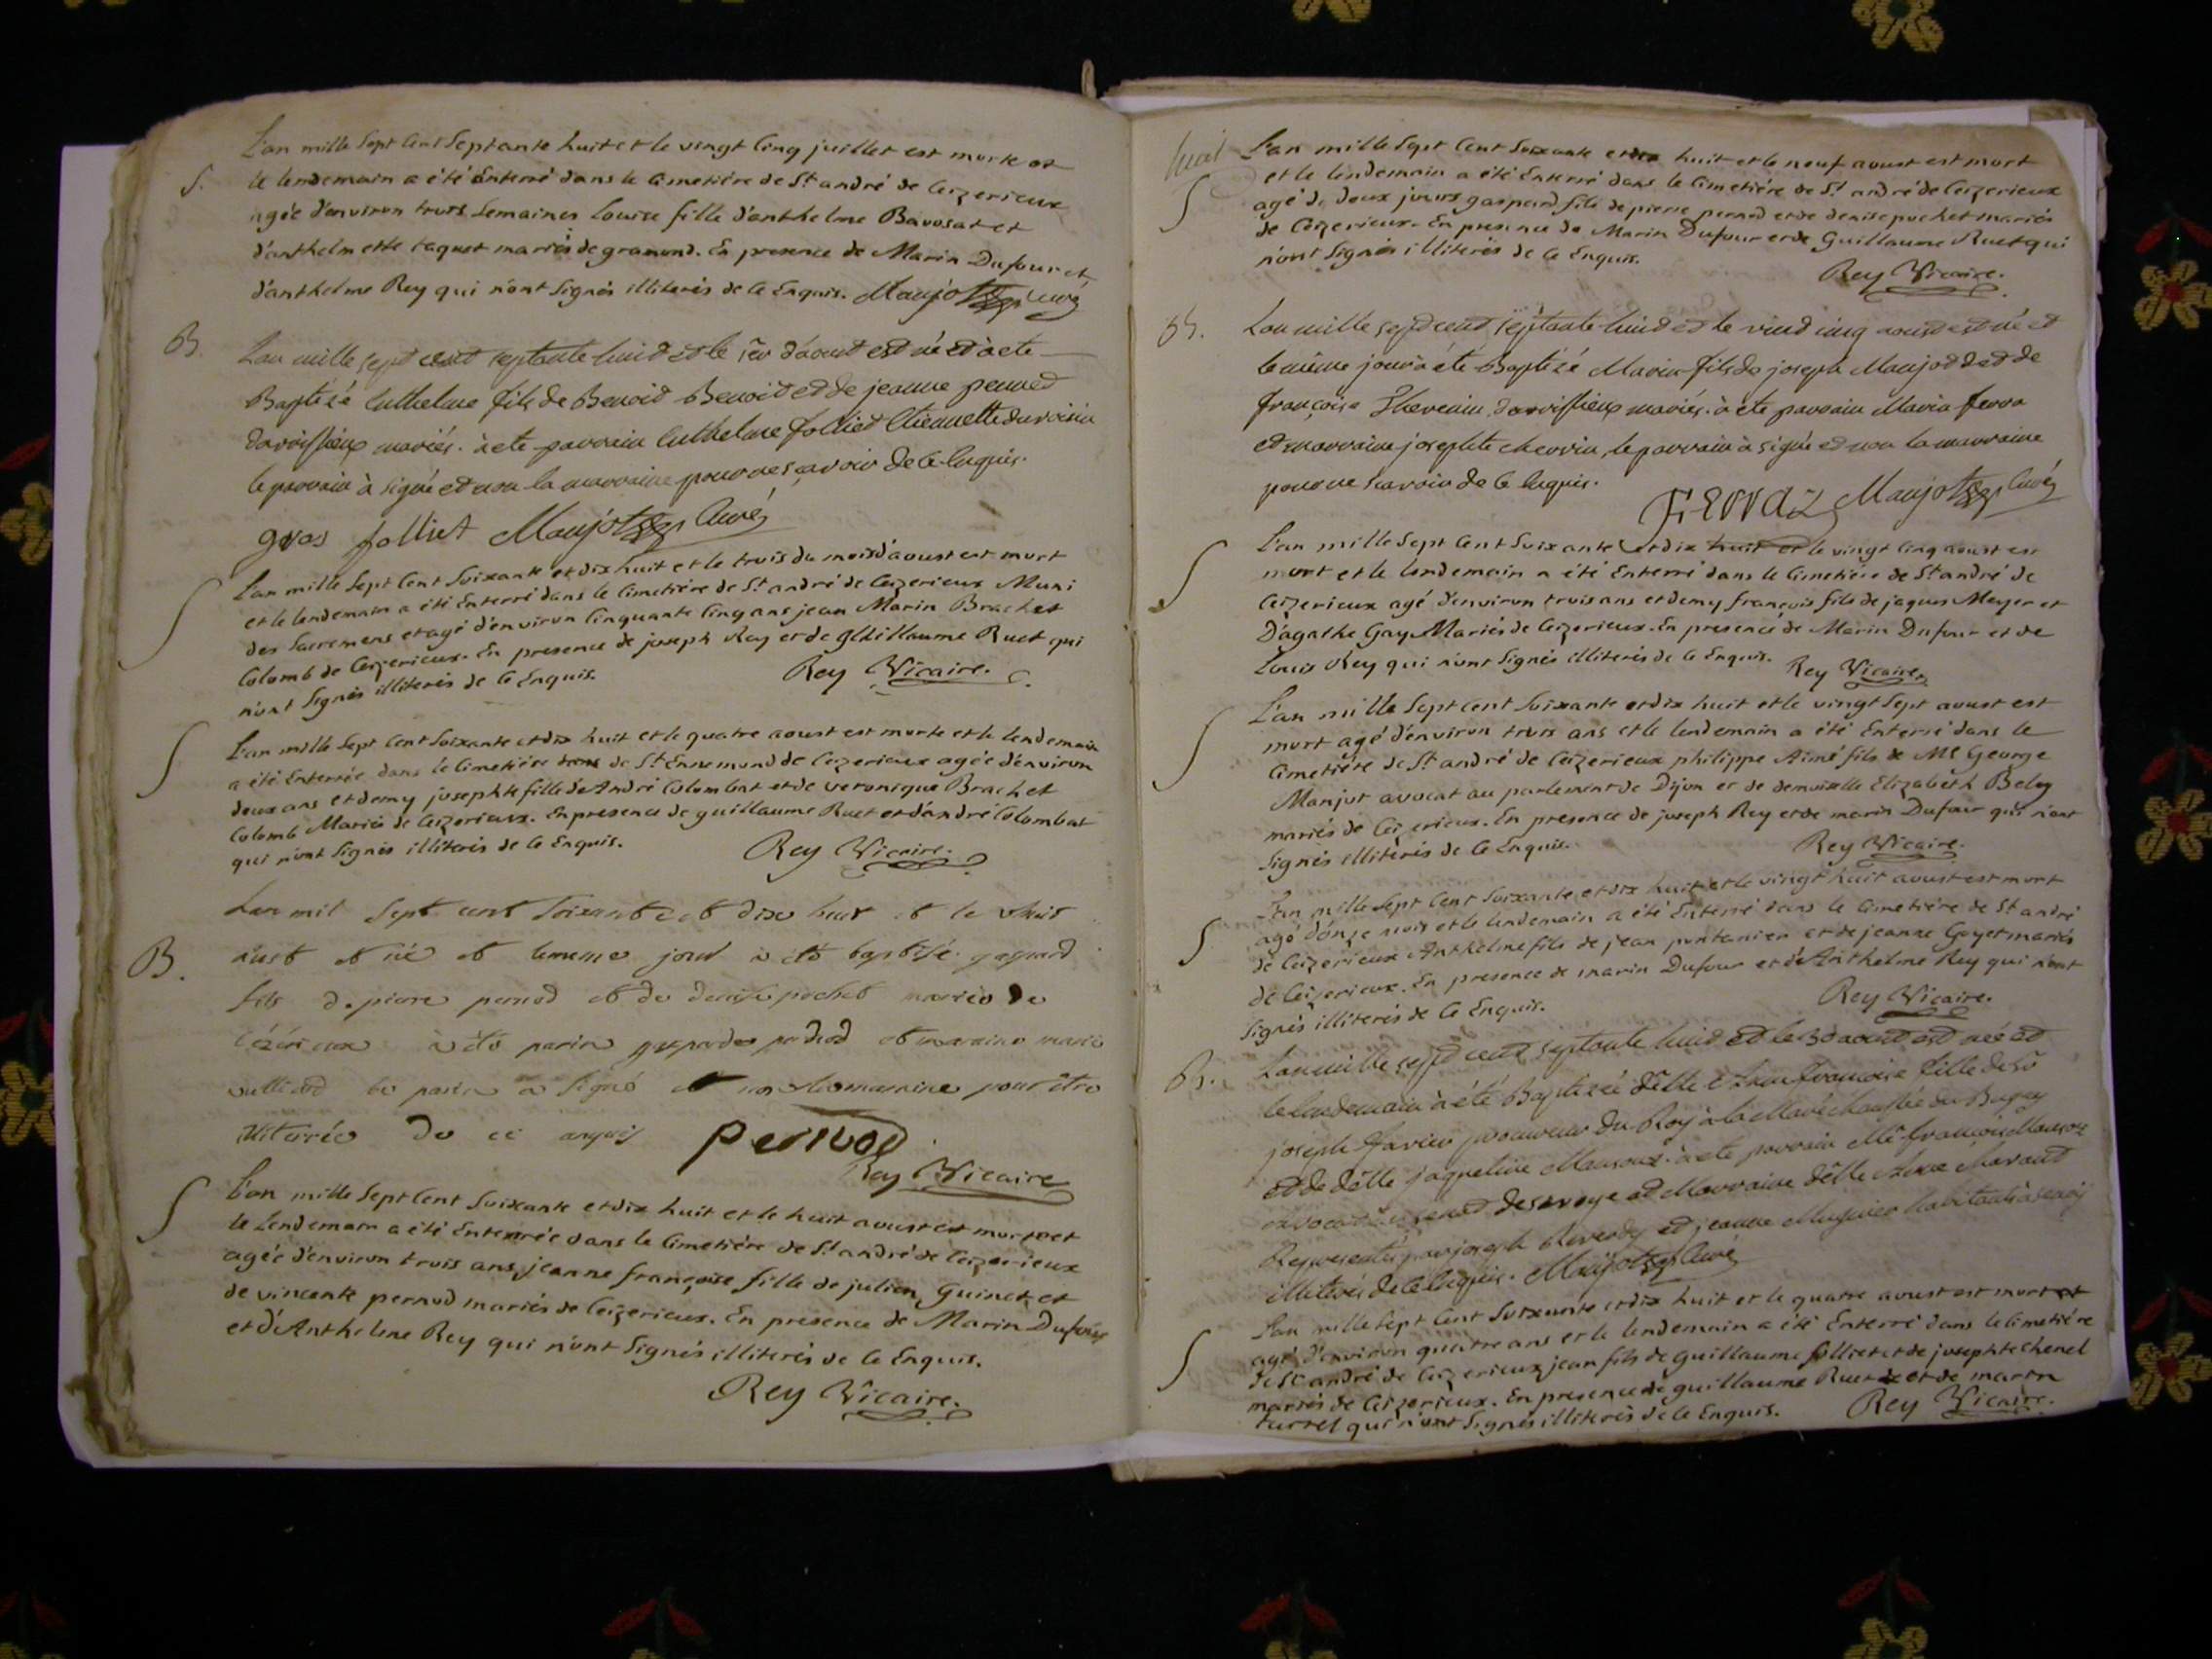 L'an mille Sept Cent Septante huit et le vingt Cinq juillet est morte et
S. le lendemain a été Enterré dans le Cimetiére de St andré de Ceizerieux
agée d'environ trois Semaines Louise fille d'anthelme Bavosat et
d'anthelmette taquet mariés de gramond. En presence de Marin Dufour et
d'anthelme Rey qui n'ont Signés illiterés de Ce Enquis. Maujot Curé
B. L'an mille sept cent septante huit et le 1er d'aout est né et à ete
Baptisé Anthelme fils de Benoit Benoit et de jeanne pernod
d'avoissieux mariés. à ete parrain Anthelme Jolliet
le parrain à signé et non la marraine pour ne sçavoir de Ce Enquis.
gros Jolliet Maujot Curé
S L'an mille Sept Cent Soixante et dix huit et le trois du mois d'aoust est mort
et le lendemain a été Enterré dans le Cimetiére de St andré de Ceizerieux Muni
des Sacremens et agé d'environ Cinquante Cinq ans jean Marin Brachet
Colomb de Ceizerieux. En presence de joseph Rey et de gUillaume Ruet qui
n'ont Signés illiterés de Ce Enquis. Rey Vicaire.
S L'an mille Sept Cent Soixante et dix huit et le quatre aoust est morte et le lendemain
a été Enterrée dans le Cimetiére de St Ennemond de Ceizerieux agée d'environ
deux ans et demy josephte fille d'André Colombat et de veronique Brachet
Colomb Mariés de Ceizerieux. En presence de guillaume Ruet et d'andré Colombat
qui n'ont Signés illiterés de Ce Enquis. Rey Vicaire.
L'an mil Sept cent Soixante et dix huit et le huit
B. aust et né et lememe jour à été baptisé gaspard
fils de piere pernod et de denise pochet mariés de
Cézérieux à été parin gaspard pernod et maraine marie
vulliod le parin a Signé et non la maraine pour être
illiterée de ce anquis pernod
Rey Vicaire
S L'an mille Sept Cent Soixante et dix huit et le huit aoust est morte et
le Lendemain a été Enterrée dans le Cimetiére de St andré de Ceizerieux
agée d'environ trois ans jeanne françoise fille de julien Guinet et
de vincente pernod mariés de Ceizerieux. En presence de Marin Dufour
et d'Anthelme Rey qui n'ont Signés illiterés de Ce Enquis.
Rey Vicaire.
huit L'an mille Sept Cent Soixante et dix huit et le neuf aoust est mort
S et le lendemain a été Enterré dans le Cimetiére de St andré de Ceizerieux
agé de deux jours gaspard fils de pierre pernod et de denise pochet mariés
de Ceizerieux. En presence de Marin Dufour et de Guillaume Ruet qui
n'ont Signés illiterés de Ce Enquis.
Rey Vicaire.
B. L'an mille sept cent septante huit et le vint cinq aoust est né et
le même jour à été Baptizé Marin fils de joseph Maujot et de
françoise Thevenin d'avoissieux mariés. à ete parrain Marin ferra
et marraine josephte chervin, le parrain à signé et non la marraine
pour ne scavoir de Ce Enquis.
FERRAZ Maujot Curé
S L'an mille Sept Cent Soixante et dix huit et le vingt Cinq aoust est
mort et le lendemain a été Enterré dans le Cimetiére de St andré de
Ceizerieux agé d'environ trois ans et demy françois fils de jaques Meyer et
D'agathe Gay Mariés de Ceizerieux. En presence de Marin Dufour et de
Louis Rey qui n'ont Signés illiterés de Ce Enquis. Rey Vicaire.
S L'an mille Sept Cent Soixante et dix huit et le vingt Sept aoust est
mort agé d'environ trois ans et le lendemain a été Enterré dans le
Cimetiére de St andré de Ceizerieux philippe Aimé fils de Me George
Manjot avocat au parlement de Dijon et de demoiselle Elizabeth Beloy
mariés de Ceizerieux. En presence de joseph Rey et de marin Dufour qui n'ont
Signés illiterés de Ce Enquis. Rey Vicaire.
S L'an mille Sept Cent Soixante et dix huit et le vingt huit aoust est mort
agé d'onze mois et le lendemain a été Enterré dans le Cimetiére de St andré
de Ceizerieux Anthelme fils de jean pontanier et de jeanne Goyet mariés
de Ceizerieux. En presence de marin Dufour et d'Anthelme Rey qui n'ont
Signés illiterés de Ce Enquis. Rey Vicaire.
B. L'an mille sept cent septante huit et le 30 aout est née et
le lendemain à été Baptizée delle françoise fille de Sr
joseph procureur du Roy à la Maréchaussée du Bugey
et de delle jaqueline à ete parrain Me françois
avocat au senat de savoye et Marraine delle
Representés par joseph et jeanne
illiterés de Ce Enquis. Maujot Curé
S L'an mille Sept Cent Soixante et dix huit et le quatre aoust est mort
agé d'environ quatre ans et le lendemain a été Enterré dans le Cimetiére
de St andré de Ceizerieux jean fils de guillaume jolliet et de josephte Chenel
mariés de Ceizerieux. En presence de guillaume Ruet et de martin
turrel qui n'ont Signés illiterés de Ce Enquis. Rey Vicaire.